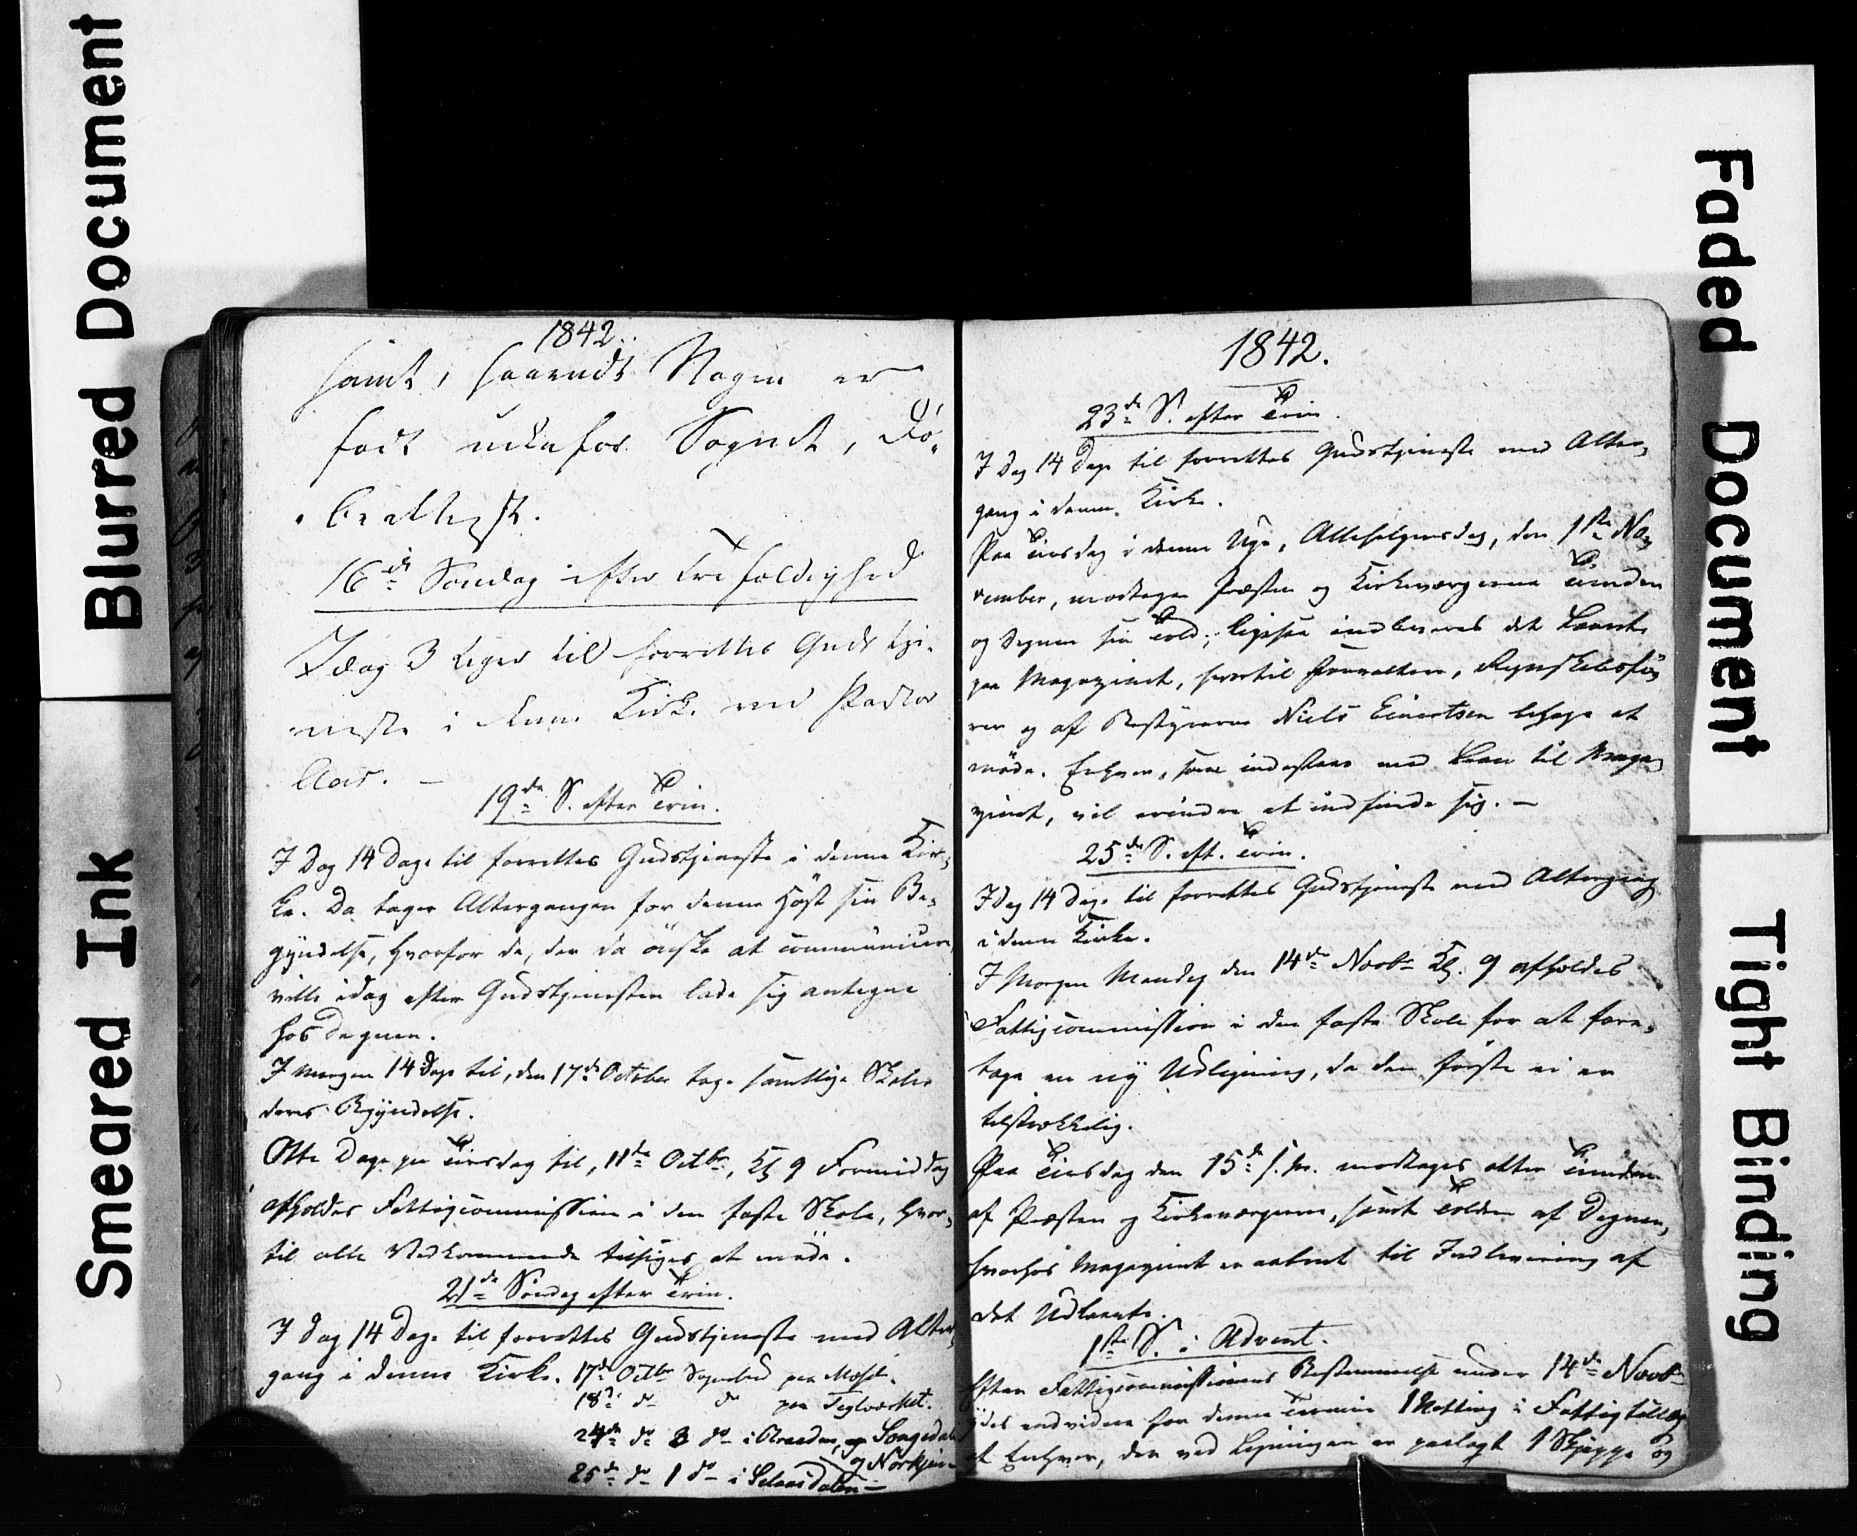 Blurred Document
Smeared Ink
Faded Document
Tight Binding
1842.
samt, saavidt Nogen er
født udenfor Sognet, Dø-
beattest.
16de Søndag efter Trefoldighed
Idag 3 Uger til forrettes Gudstje-
neste i denne Kirke ved Pastor
19de S. efter Trin.
I Dag 14 Dage til forrettes Gudstjeneste i denne Kir-
ke. Da tager Altergangen for denne Høst sin Be-
gyndelse, hvorfor de, der da ønske at communicere,
ville idag efter Gudstjenesten lade sig antegne
hos Degnen.
I morgen 14 Dage til, den 17de October tage samtlige Skoler
deres Begyndelse.
Otte Dage paa Tirsdag til, 11te Octbr, Kl 9 Formiddag
afholdes Fattigcommission i den faste Skole, hvor-
til alle Vedkommende tilsiges at møde.
21de Søndag efter Trin.
I Dag 14 Dage til forrettes Gudstjeneste med Alter-
gang i denne Kirke. 17de Octbr Sognebud paa
18de do do paa Teglværket.
24de do do i og
og
25de do 1 do i
1842.
23de S. efter Trin.
I Dag 14 Dage til forrettes Gudstjeneste med Alter-
gang i denne Kirke.
Paa Tirsdag i denne Uge, Allehelgensdag, den 1ste No-
vember, modtager Præsten og Kirkeværgerne Tienden
og Degnen sin Told; ligesaa indleveres det Laante
paa Magazinet, hvortil Forvalteren, Regnskabsfø-
rer og af Bestyrerne Niels Einertsen behage at
møde. Enhver, som indestaar med Laan til Maga-
zinet, vil erindre at indfinde sig. –
25de S. eft. Trin.
Idag 14 Dage til forrettes Gudstjeneste med Altergang
i denne Kirke.
I Morgen Mandag den 14de Novbr Kl. 9 afholdes
Fattigcommission i den faste Skole for at fore-
tage en ny Udligning, da den første ei er
tilstrækkelig.
Paa Tirsdag den 15de modtages atter Tienden
af Præsten og Kirkeværgerne, samt Tolden af Degnen,
hvorhos Magazinet er aabent til Indlevering af
det Udlaante.
1ste S. i Advent.
Efter Fattigcommissionens Bestemmelse under 14de Novbr
ydes endvidere for denne Termin 1 i Fattigtillæg
at Enhver, der ved Ligningen er paalagt 1 Skjeppe og